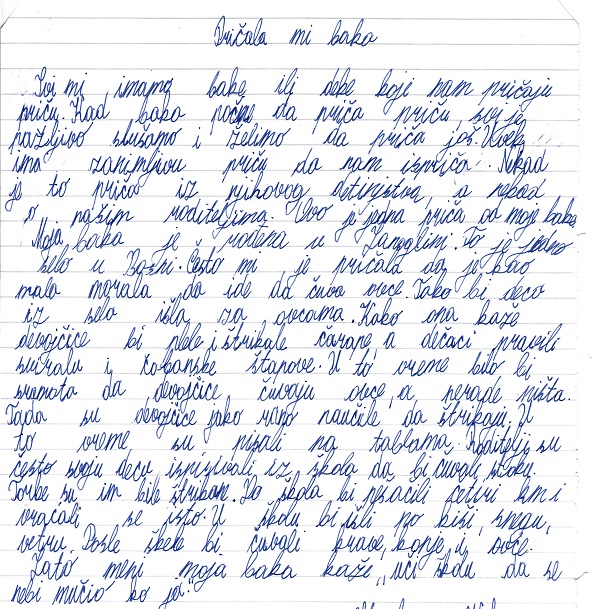 Pričala mi baka
Svi mi imamo bake ili deke koji nam pričaju
priču. Kad baka počne da priča priču, svi je
pažljivo slušamo i želimo da priča još. Uvek
ima zanimljivu priču da nam ispriča. Nekad
je to priča iz njihovog detinjstva, a nekad
o našim roditeljima. Ovo je jedna priča od moje bake.
Moja baka je rođena u To je jedno
selo u Bosni. Često mi je pričala da je kao
mala morala da ide da čuva ovce. Tako bi deca
iz sela išla za ovcama. Kako ona kaže
devojčice bi plele i štrikale čarape, a dečaci pravili
sviralu i čobanske štapove. U to vreme bilo bi
sramota da devojčice čuvaju ovce, a nerade ništa.
Tada su devojčice jako rano naučile da štrikaju. U
to vreme su pisali na tablama. Roditelji su
često svoju decu ispisivali iz škola da bi čuvali stoku.
Torbe su im bile štrikane. Do škola bi pešačili četiri km i
vraćali se isto. U školu bi išli po kiši, snegu,
vetru. Posle škole bi čuvali krave, konje i ovce.
Zato meni moja baka kaže „uči školu da se
nebi mučio ko ja.“